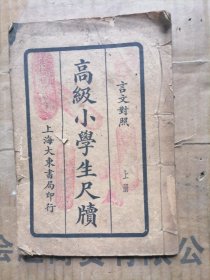 言文對照
高級小學生尺牘
上册
上海大東書局印行